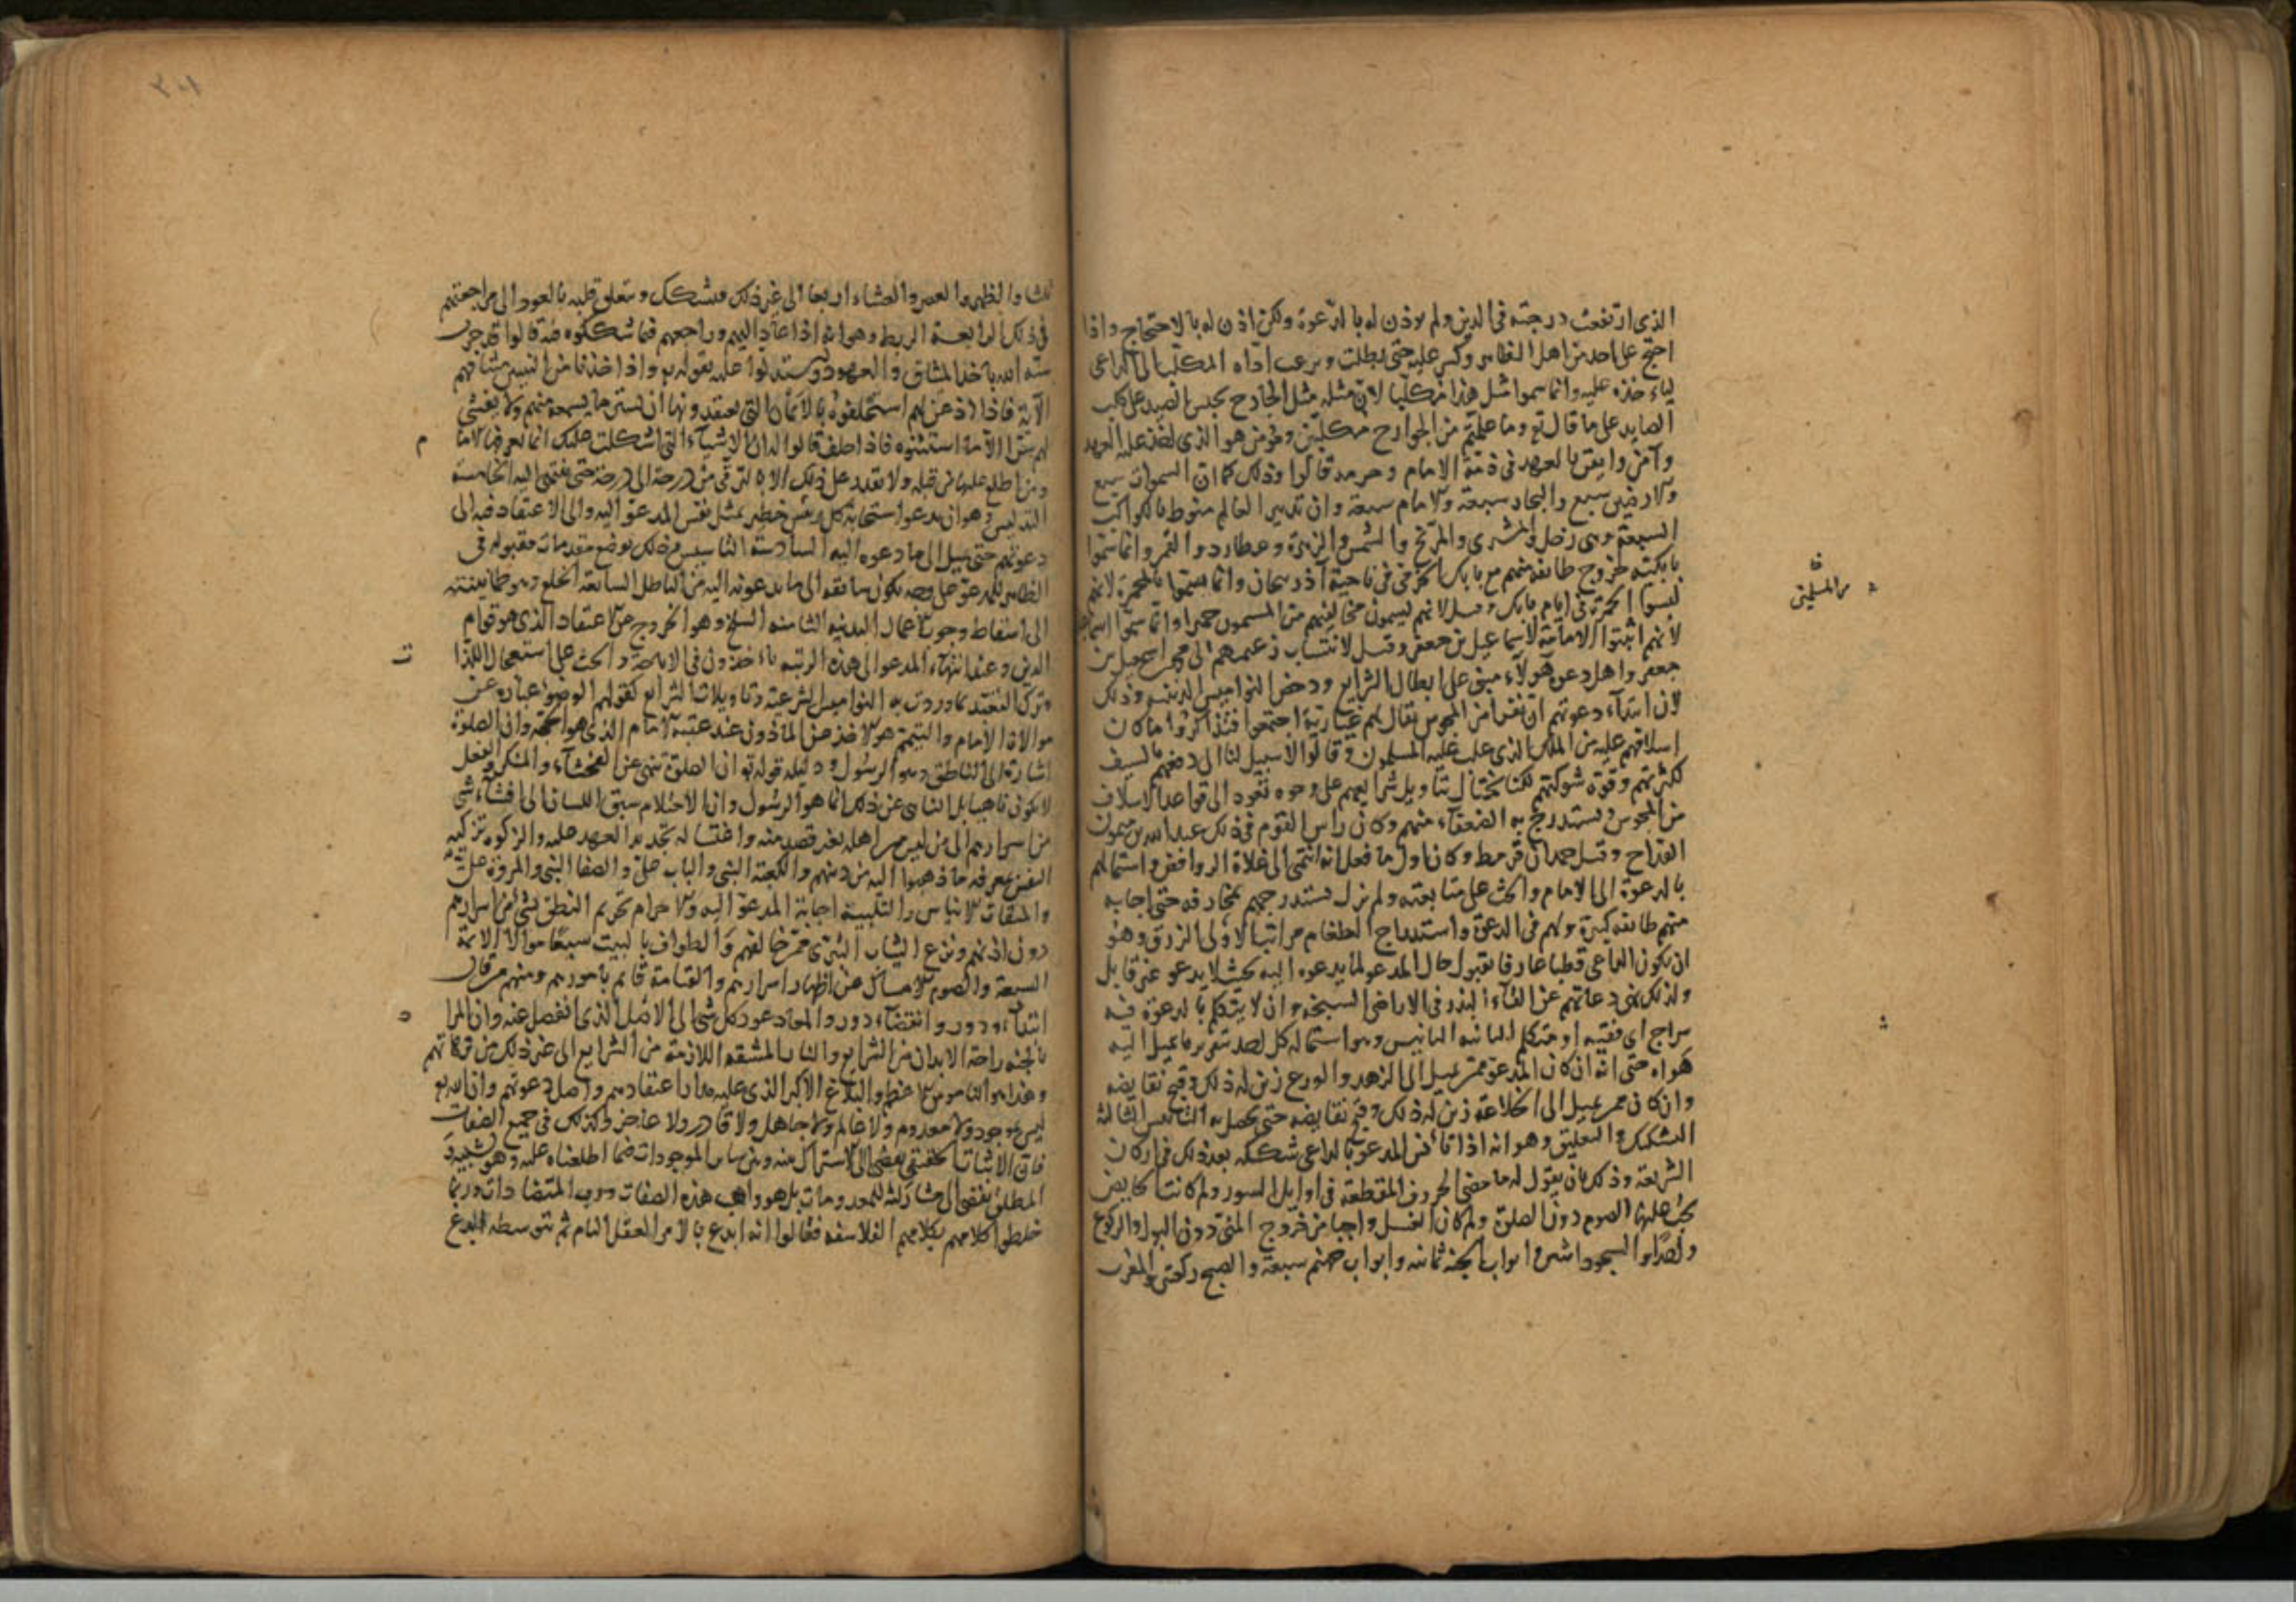 الذي ارتفعت درجته في الدين ولم يوذن له بالدعوة ولكن اذن له بالاحتجاج واذا
احتج على احد من اهل الظاهر وكسر عليه حتى يطلب ويرغب اداه المكلب الى الداعي
لياءخذه عليه وانما سموا مثل هذا مكلبا لان مثله مثل الجارح يحبس الصيد على كلب
الصايد على ما قال تع وما علمتم من الجوارح مكلبين ومؤمن هو الذي اخذ عليه العهد
وآمن وايقن بالعهد في ذمة الامام وحزبه قالوا وذلك كما ان السموات سبع
والارضين سبع والبحار سبعة والايام سبعة وان تدبير العالم منوط بالكواكب
السبعة وهي زحل والمشتري والمريخ والشمس والزهرة وعطارد والقمر وانما سموا
بابكية لخروج طايفة منهم مع بابك الخرمي في ناحية آذربيجان وانما سموا بالمحمرة لانهم
لبسوا الحمرة في ايام بابك وقيل لانهم يسمون مخالفيهم من المسلمين حميرا وانما سموا
لانهم اثبتوا الامامة لاسماعيل بن جعفر وقيل لانتساب زعيمهم الى محمد بن اسمعيل بن
جعفر واصل دعوة هولاء مبني على ابطال الشرايع ودحض النواميس الدينية وذلك
لان ابتداء دعوتهم ان نفرا من المجوس يقال لهم غيارية اجتمعوا فتذاكروا ما كان
اسلافهم عليه من الملك الذي غلب عليه المسلمون وقالوا لا سبيل لنا الى دفعهم بالسيف
لكثرتهم وقوة شوكتهم لكنا نحتال بتاويل شرايعهم على وجوه تعود الى قواعد الاسلاف
من المجوس ونستدرج به الضعفاء منهم وكان راس القوم في ذلك عبد الله بن ميمون
القداح وقيل حمدان قرمط وكان اول ما فعل انه انتمى الى غلاة الروافض واستمالهم
بالدعوة الى الامام والحث على متابعته ولم يزل يستدرجهم بمخارقه حتى اجابه
منهم طايفة كثيرة ولهم في الدعوة واستدراج الطغام مراتب الاولى الزرق وهو
ان يكون الداعي فطنا عارفا بقبول حال المدعو لما يدعوه اليه بحيث لا يدعو غير قابل
ولذلك نهى دعاتهم عن القاء البذر في الاراضي السبخة وان لا يتكلم بالدعوة في بيت فيه
سراج اي فقيه او متكلم الثانية التانيس وهو استمالة كل احد بتقرير ما يميل اليه
هواه حتى انه ان كان المدعو ممن يميل الى الزهد والورع زين له ذلك وقبح نقايضه
وان كان ممن يميل الى الخلاعة زين له ذلك وقبح نقايضه حتى يحصل به التانيس الثالثة
التشكيك والتعليق وهو انه اذا تانس المدعو بالداعي شككه بعد ذلك في اركان
الشريعة وذلك بان يقول له ما معنى الحروف المقطعة في اوايل السور ولم كانت الحايض
يجب عليها الصوم دون الصلوة ولم كان الغسل واجبا من خروج المني دون البول والركوع
السجود اثنين وابواب الجنة ثمانية وابواب جهنم سبعة والصبح ركعتين والمغرب
من المسلمين
ثلثا والظهر والعصر والعشاء اربعا الى غير ذلك فيتشكك ويتعلق قلبه بالعود الى مراجعتهم
في ذلك الرابعة الربط وهو انه اذا عاد اليهم وراجعهم فيما شككوه فيه قالوا قد جرت
سنة الله باخذ الميثاق والعهود ويستدلوا عليه بقوله تع واذ اخذنا من النبيين ميثاقهم
الآية فاذا اذعن لهم استحلفوه بالايمان التي يعتقدونها ان يستر ما يسمعه منهم ولا يفشي
لهم سرا الا من استثنوه فاذا حلف قالوا له ان الاشياء التي اشكلت عليك انما يعرفها الامام
ومن اطلع عليها من قبله ولا تقدر على ذلك الا بالترقي من درجة الى درجة حتى تنتهي اليه الخامسة
التدليس وهو ان يدعوا استجابة كل رئيس خطير يمثل نفس المدعو اليه والى الاعتقاد فيه الى
دعوتهم حتى يميل الى ما دعوه اليه السادسة التاسيس وذلك بوضع مقدمات مقبولة في
الظاهر للمدعو على وجه يكون سايقة الى ما يدعونه اليه من الباطل السابعة الخلع وهو طمانينته
الى اسقاط وجوب الاعمال البدنية الثامنة السلخ وهو الخروج عن الاعتقاد الذي هو قوام
الدين وعند انتهاء المدعو الى هذه الرتبة ياءخذون في الاباحة والحث على استعمال اللذات
وترك التقيد بما وردت به النواميس الشرعية وتاويلات الشرايع كقولهم الوضوء عبارة عن
موالاة الامام والتيمم هو الاخذ من الماذون عند غيبة الامام الذي هو الحجة وان الصلوة
اشارة الى الناطق وهو الرسول ودليله قوله تع ان الصلوة تنهى عن الفحشاء والمنكر والفعل
لا يكون ناهيا بل الناهي عن ذلك انما هو الرسول وان الاحتلام سبق اللسان الى افشاء شي
من اسرارهم الى من ليس من اهله بغير قصد منه واغتساله تجديد العهد عليه والزكوة تزكية
النفس بمعرفة ما ذهبوا اليه من دينهم والكعبة النبي والباب علي والصفا النبي والمروة علي
والميقات الايناس والتلبية اجابة المدعو اليه والاحرام تحريم النطق بشي من اسرارهم
دون اذنهم ونزع الثياب التبري ممن خالفهم والطواف بالبيت سبعا موالاة الائمة
السبعة والصوم الامساك عن اظهار اسرارهم والقيامة قايم بامورهم ومنهم من قال
ابتداء دور وانقضاء دور والمعاد عود كل شي الى الاصل الذي انفصل عنه وان المراد
بالجنة راحة الابدان من الشرايع والنار المشقة اللازمة من الشرايع الى غير ذلك من ترهاتهم
وهذا هو الناموس الاعظم والبلاغ الاكبر الذي عليه مدار اعتقادهم واصل دعوتهم وان الله تع
ليس بموجود ولا معدوم ولا عالم ولا جاهل ولا قادر ولا عاجز وكذلك في جميع الصفات
فان الاثبات الحقيقي يفضي الى الاشتراك بينه وبين ساير الموجودات فيما اطلقناه عليه وهو تشبيه
المطلق يفضي الى مشاركته للمعدومات بل هو واهب هذه الصفات ورب المتضادات وربما
خلطوا كلامهم بكلام الفلاسفة فقالوا انه ابدع بالامر العقل التام ثم بتوسطه ابدع